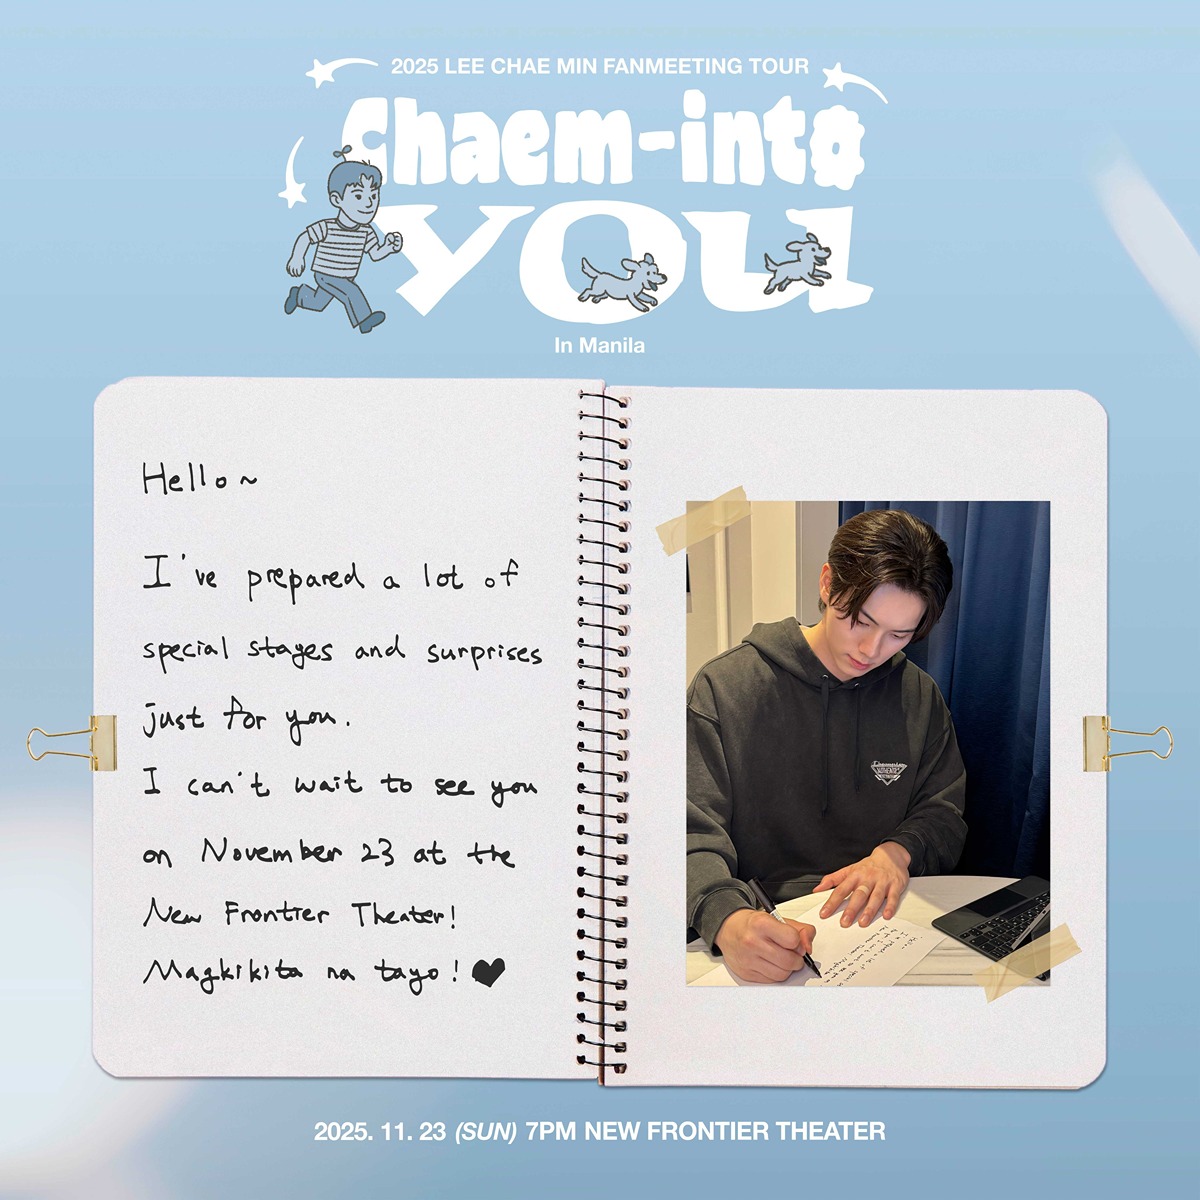 2025 LEE CHAE MIN FANMEETING TOUR
Chaem-into
YOU
In Manila
Hello~
I've prepared a lot of
special stages and surprises
just for you.
I can't wait to see you
on November 23 at the
New Frontier Theater!
Magkikita na tayo! ♥
AUTHENTIC
2025. 11. 23 (SUN) 7PM NEW FRONTIER THEATER